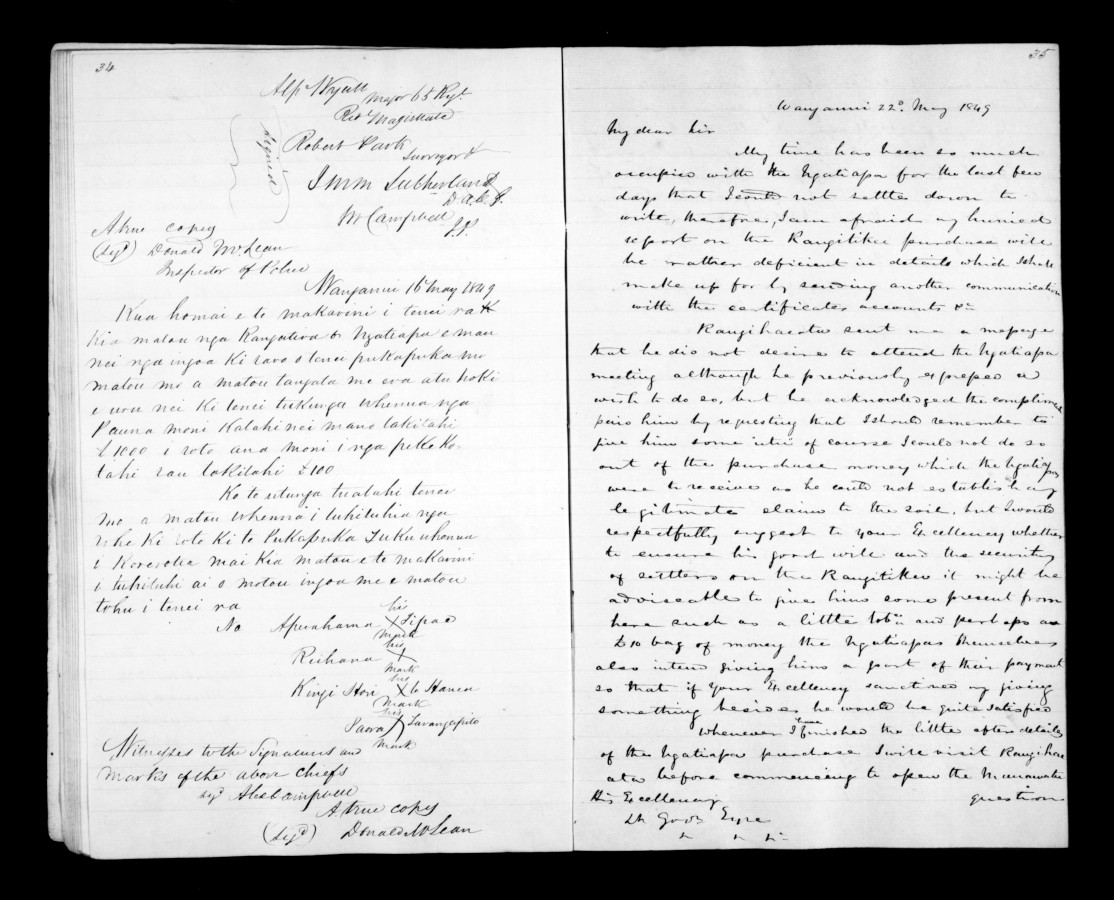 34
Alfd Wyatt
Major 65 Regt.
Resd. Magistrate
Signed
Robert Park
Surveyor &
Sutherland
W Campbell
J.P.
A true copy
(Sigd) Donald McLean
Inspector of Police
Wanganui 16 May 1849
Kua homai e te makarini i tenei ra
Kia matou nga Rangatira o Ngatiapa e mau
nei nga ingoa ki raro o tenei pukapuka mo
matou mo a matou tangata me era atu hoki
e uru nei ki tenei tukunga whenua nga
Pauna moni Kotahi nei mano takitahi
£1000 i roto ano moni i nga peke Ko-
tahi rau takitahi £100
Ko te utunga tuatahi tenei
mo a matou whenua i tuhituhia nga
rohe ki roto ki te Pukapuka Tuku whenua
i Korerotia mai kia matou e te makarini
i tuhituhi ai o matou ingoa me o matou
tohu i tenei ra
Na Apurahama his X mark Tipae
Reihana his X mark
Kingi Hori his X mark te Hanea
Paora his X mark Turangapito
Witnesses to the Signatures and
Marks of the above chiefs
sigd Alex Campbell
A true copy
(Sigd) Donald McLean
35
Wanganui 22d. May 1849
My dear Sir
My time has been so much
occupied with the Ngatiapa for the last few
days that I could not settle down to
write, therefore, I am afraid my hurried
report on the Rangitikei purchase will
be rather deficient in details which I shall
make up for by sending another communication
with the certificates accounts &c
Rangihaeata sent me a message
that he did not desire to attend the Ngatiapa
meeting although he previously expressed a
wish to do so, but he acknowledged the compliment
paid him by requesting that I should remember to
give him some "utu" of course I could not do so
out of the purchase money which the Ngatiapas
were to receive as he could not establish any
legitimate claim to the soil, but I would
respectfully suggest to your Excellency whether
to ensure his good will and the security
of settlers on the Rangitikei it might be
adviseable to give him some present from
here such as a little and perhaps a
£10 bag of money the Ngatiapas themselves
also intend giving him a part of their payment
so that if Your Excellency sanctioned my giving
something besides he would be quite satisfied
Whenever I have finished the little after details
of the Ngatiapa purchase I will visit Rangihae
ata before commencing to open the Manawatu
question
His Excellency
Lt Govr Eyre